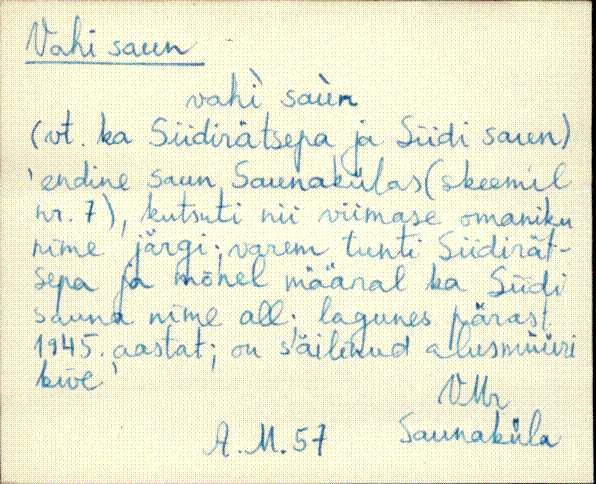 Vahi saun
vahì saùn
(vt. ka Siidirätsepa ja Siidi saun)
'endine saun Saunakülas (skeemil
nr. 7), kutsuti nii viimase omaniku
nime järgi; varem tunti Siidirät-
sepa ja mõnel määral ka Siidi
sauna nime all; lagunes pärast
1945. aastat; on säilinud alusmüüri
kive'
VMr
A.M.57 Saunaküla